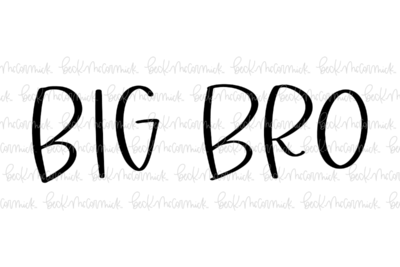 BIG BRO